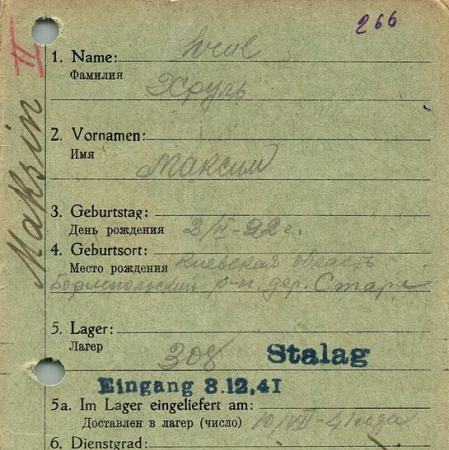 266
Maksin II
1. Name:
Фамилия
Хруль
2. Vornamen:
Имя
Максим
3. Geburtstag:
День рождения 2/II-22 г.
4. Geburtsort:
Место рождения Киевская область
р-н. дер. Старе
5. Lager:
Лагер 308 Stalag
Eingang 8.12.41
5a. Im Lager eingeliefert am:
Доставлен в лагер (число) 10/VIII-41 года
6. Dienstgrad: